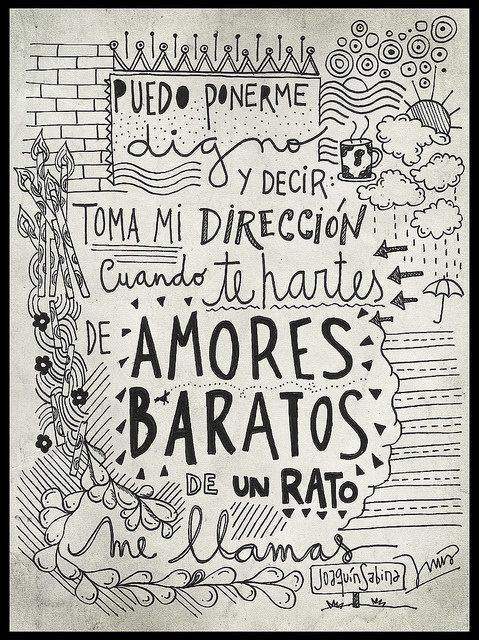 PUEDO PONERME
digno
Y DECIR:
TOMA MI DIRECCIÓN
Cuando te hartes
DE AMORES
BARATOS
DE UN RATO
me llamas
JoaquínSabina